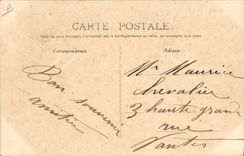 CARTE POSTALE
Correspondance
Adresse
Bon souvenir
amitié
Mr Maurice
Chevalier
3 haute grande
rue
Nantes